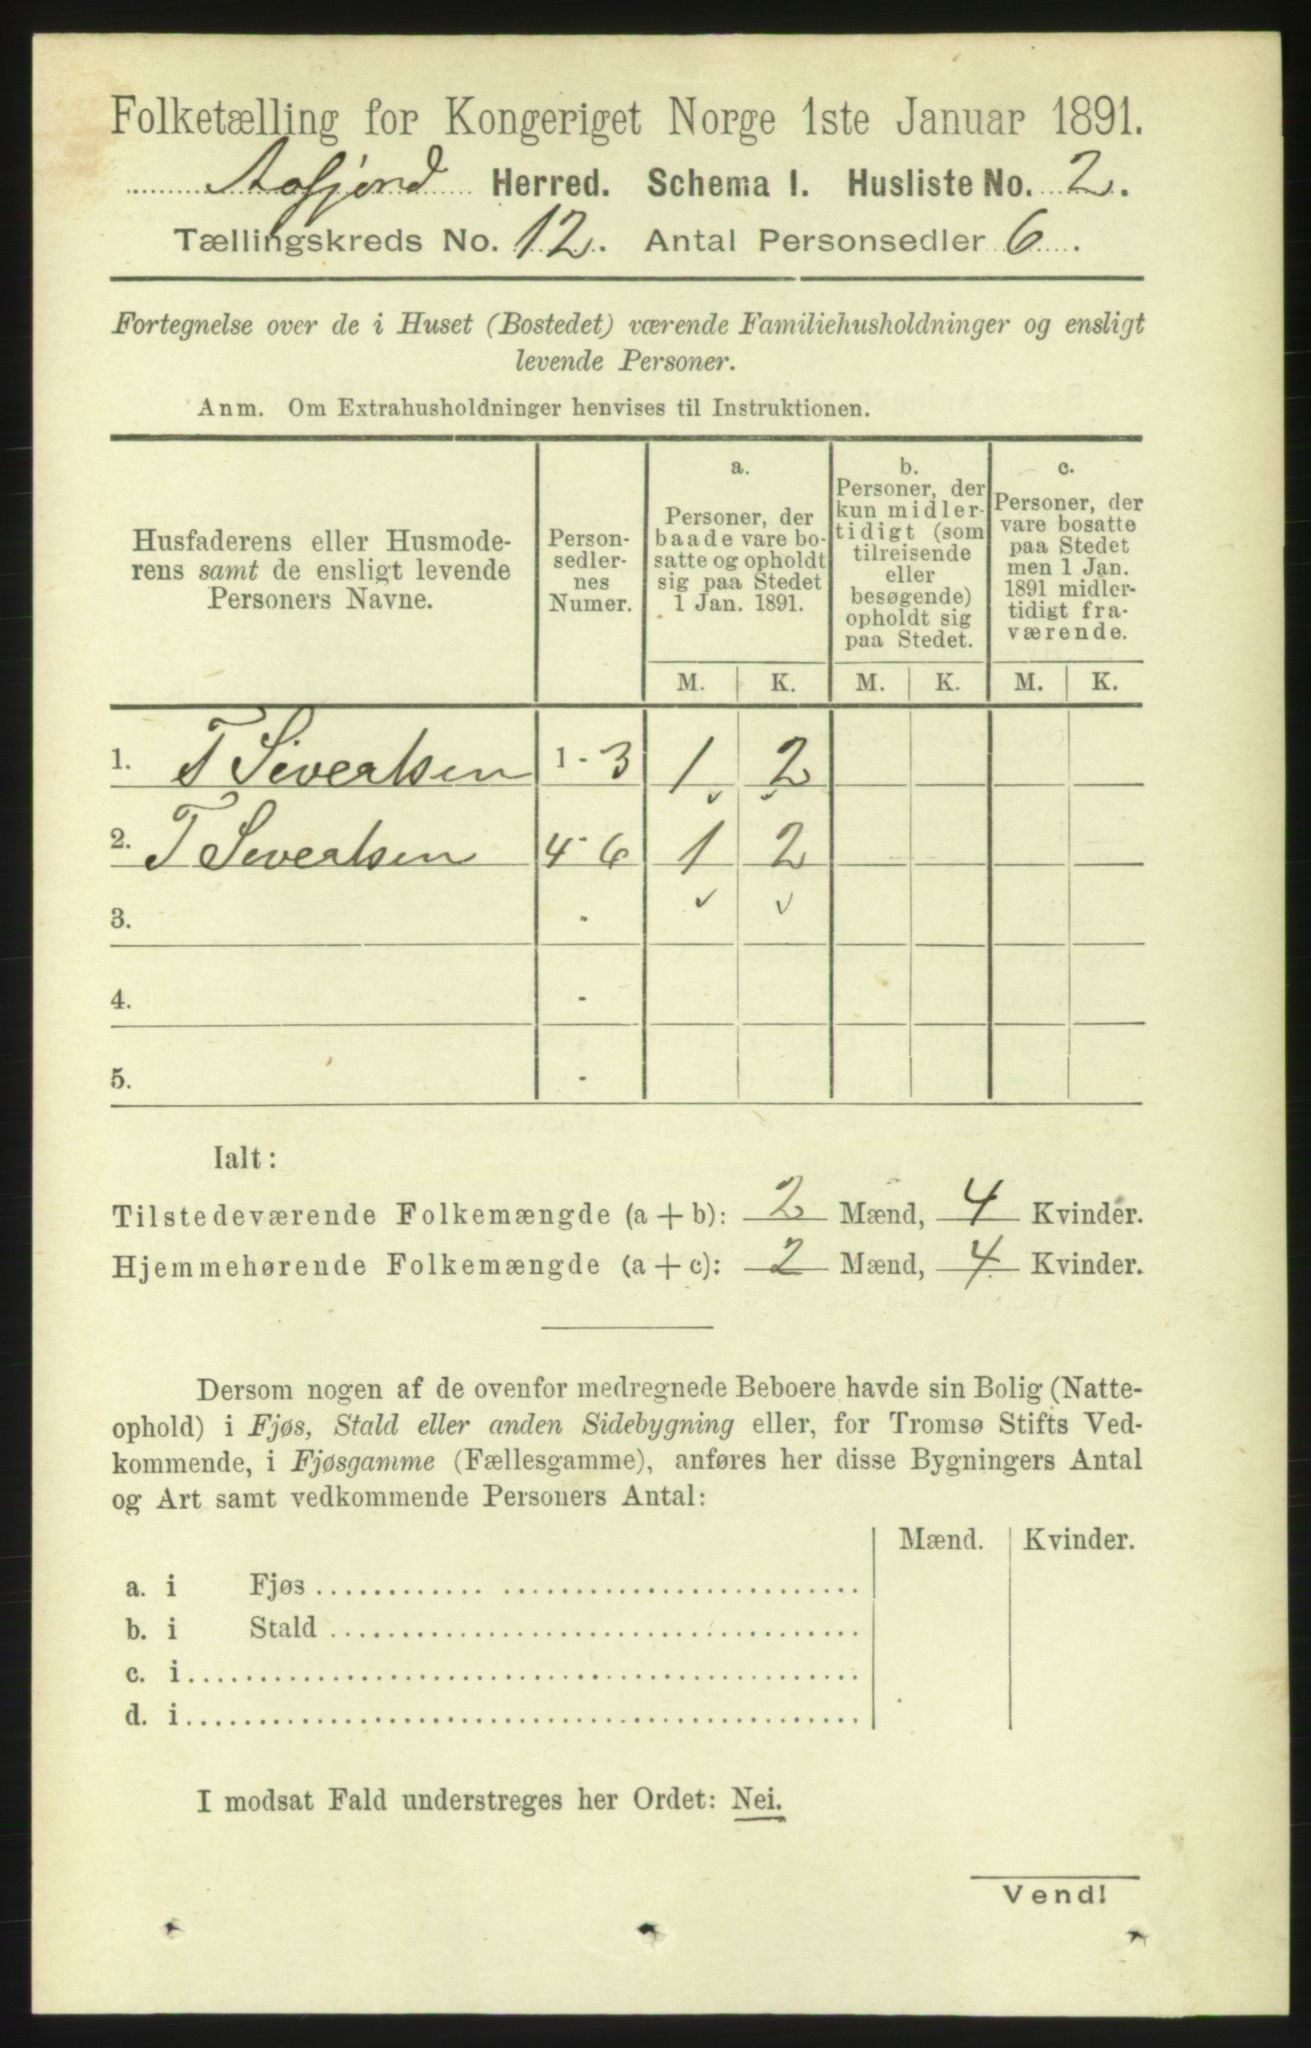 Folketælling for Kongeriget Norge 1ste Januar 1891.
Aafjord Herred. Schema I. Husliste No. 2.
Tællingskreds No. 12. Antal Personsedler 6.
Fortegnelse over de i Huset (Bostedet) værende Familiehusholdninger og ensligt
levende Personer.
Anm. Om Extrahusholdninger henvises til Instruktionen.
Husfaderens eller Husmode-
rens samt de ensligt levende
Personers Navne.
Person-
sedler-
nes
Numer.
a.
Personer, der
baade vare bo-
satte og opholdt
sig paa Stedet
1 Jan. 1891.
b.
Personer, der
kun midler-
tidigt (som
tilreisende
eller
besøgende)
opholdt sig
paa Stedet.
c.
Personer, der
vare bosatte
paa Stedet
men 1 Jan.
1891 midler-
tidigt fra-
værende.
M. K. M. K. M. K.
1. T Sivertsen 1 - 3 1 2
2. T Sivertsen 4 - 6 1 2
3. -
4. -
5. -
Ialt:
Tilstedeværende Folkemængde (a + b): 2 Mænd, 4 Kvinder.
Hjemmehørende Folkemængde (a + c): 2 Mænd, 4 Kvinder.
Dersom nogen af de ovenfor medregnede Beboere havde sin Bolig (Natte-
ophold) i Fjøs, Stald eller anden Sidebygning eller, for Tromsø Stifts Ved-
kommende, i Fjøsgamme (Fællesgamme), anføres her disse Bygningers Antal
og Art samt vedkommende Personers Antal:
Mænd. Kvinder.
a. i Fjøs
b. i Stald
c. i
d. i
I modsat Fald understreges her Ordet: Nei.
Vend!